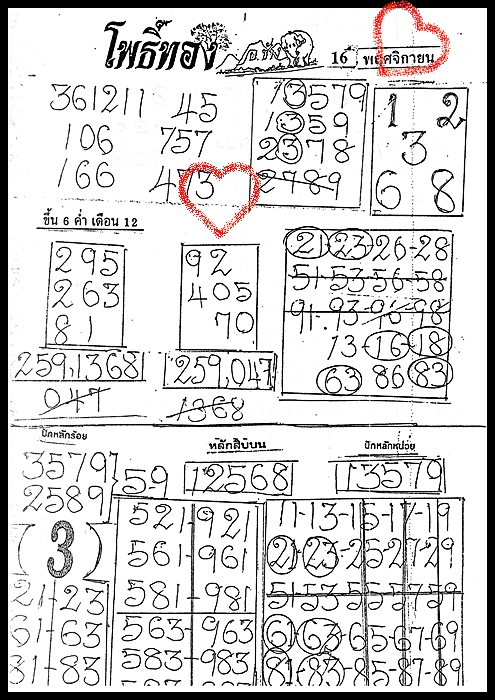 โพธิ์ทอง
16 พฤศจิกายน
361211 45
106 757
166 473
13579
1359
2378
2789
1 2
3
6 8
ขึ้น 6 ค่ำ เดือน 12
295
263
81
92
405
70
21 23-26-28
51-53-56-58
91-93-96-98
13-16-18
63 86 83
259,1368
047
259,047
1368
ปักหลักร้อย
หลักสิบบน
ปักหลักหน่วย
3579
2589
5-9
12568
13579
(3)
21-23
61-63
81-83
521-921
561-961
581-981
563-963
583-983
11-13-15-17-19
21-23-25-27-29
51-53-55-57-59
61-63-65-67-69
81-83-85-87-89